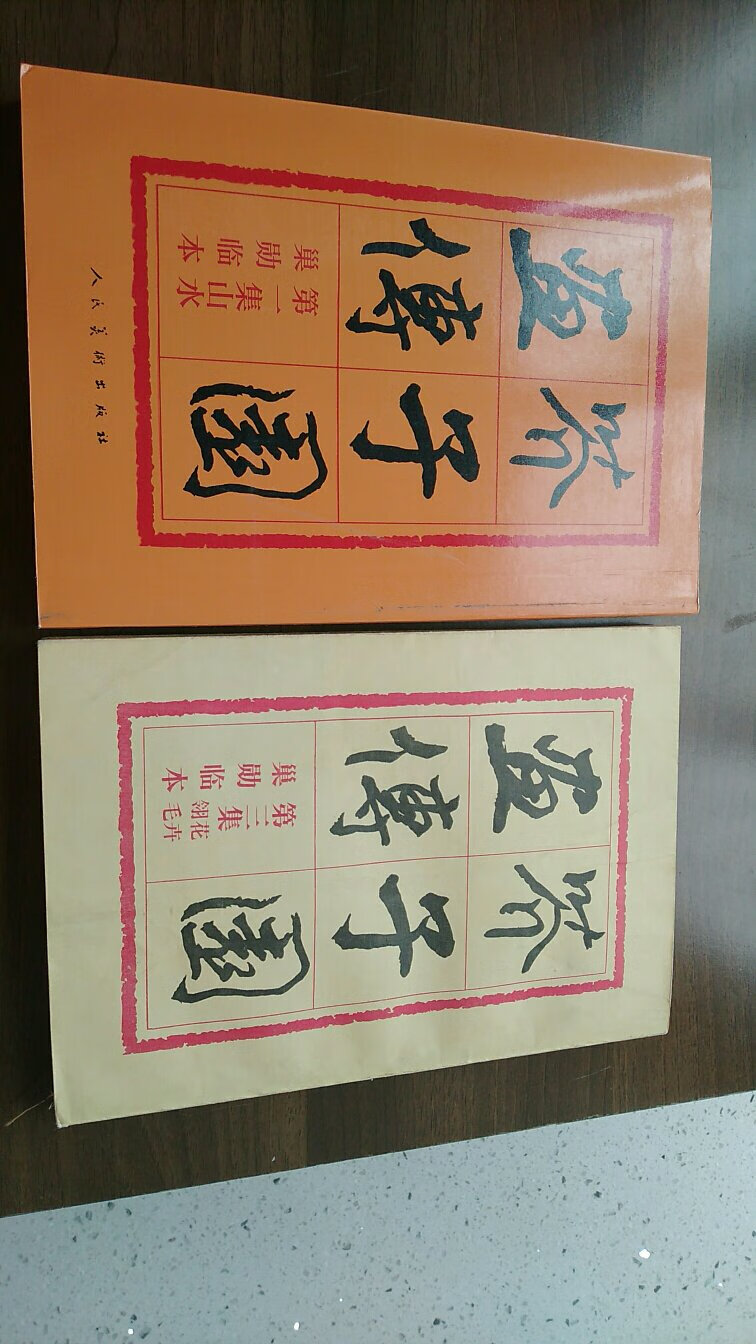 芥子園
画傳
第一集山水
巢勋临本
人民美術出版社
芥子園
画傳
第三集
花卉
翎毛
巢勋临本